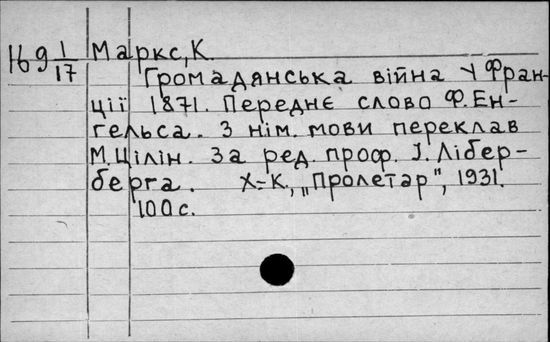 169 1/17 Маркс, К.
Громадянська війна у Фран-
ції 1871. Переднє слово Ф. Ен-
гельса. З нім. мови переклав
М. Цілін. За ред. проф. І. Лібер-
берга. Х-К., „Пролетар", 1931.
100 с.